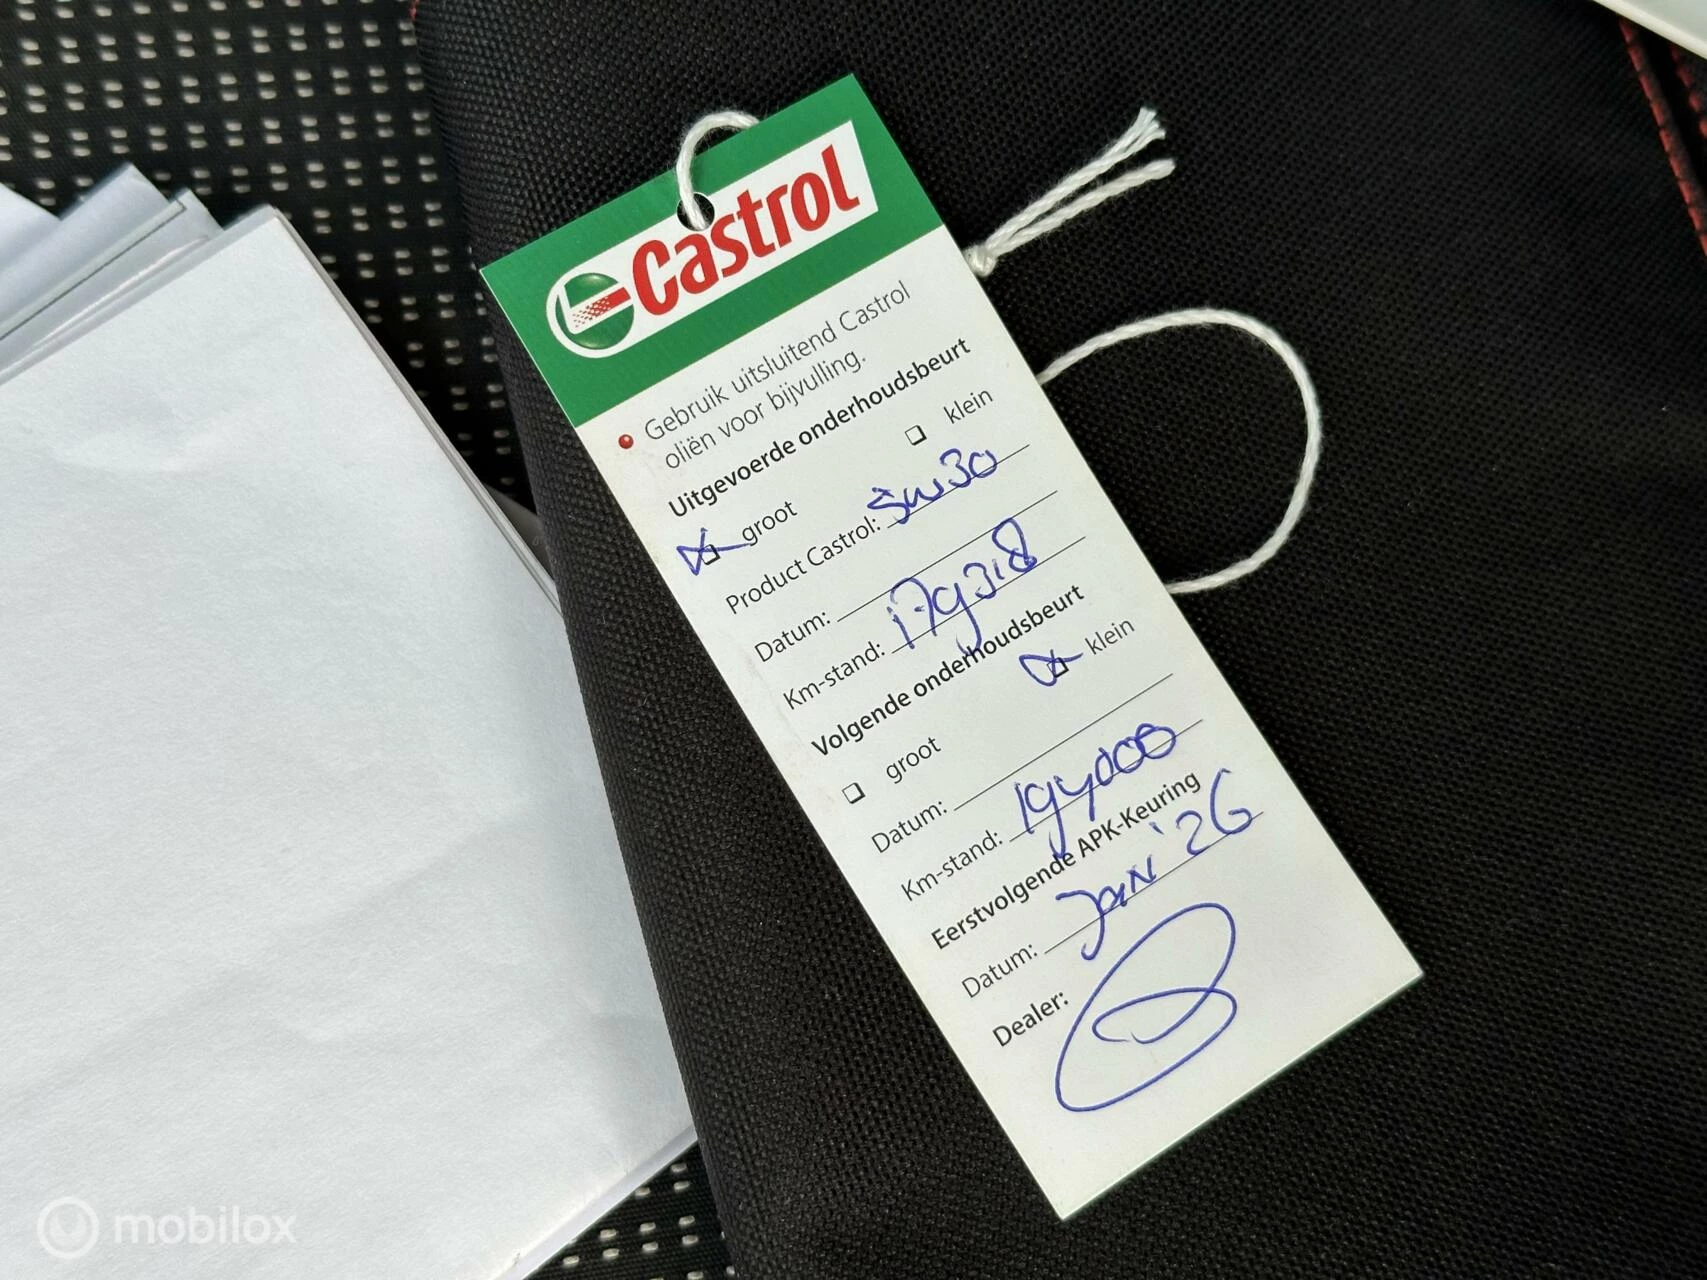 Castrol
Gebruik uitsluitend Castrol
oliën voor bijvulling.
Uitgevoerde onderhoudsbeurt
groot klein
Product Castrol: 5w30
Datum:
Km-stand: 179318
Volgende onderhoudsbeurt
groot klein
Datum:
Km-stand: 194000
Eerstvolgende APK-Keuring
Datum: Jan '26
Dealer:
mobilox